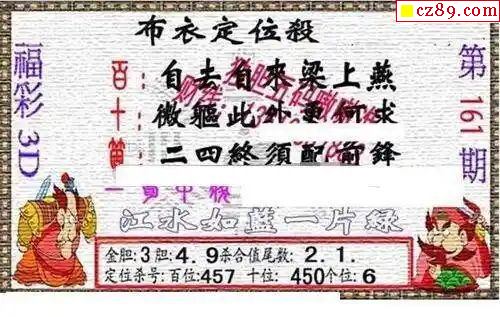 cz89.com
布衣定位殺
福彩3D
第161期
百:自去自來梁上燕
十:微軀此外更何求
二四終須配前鋒
江水如藍一片綠
金胆:3胆:4.9杀合值尾数:2.1.
定位杀号:百位:457 十位:450个位:6